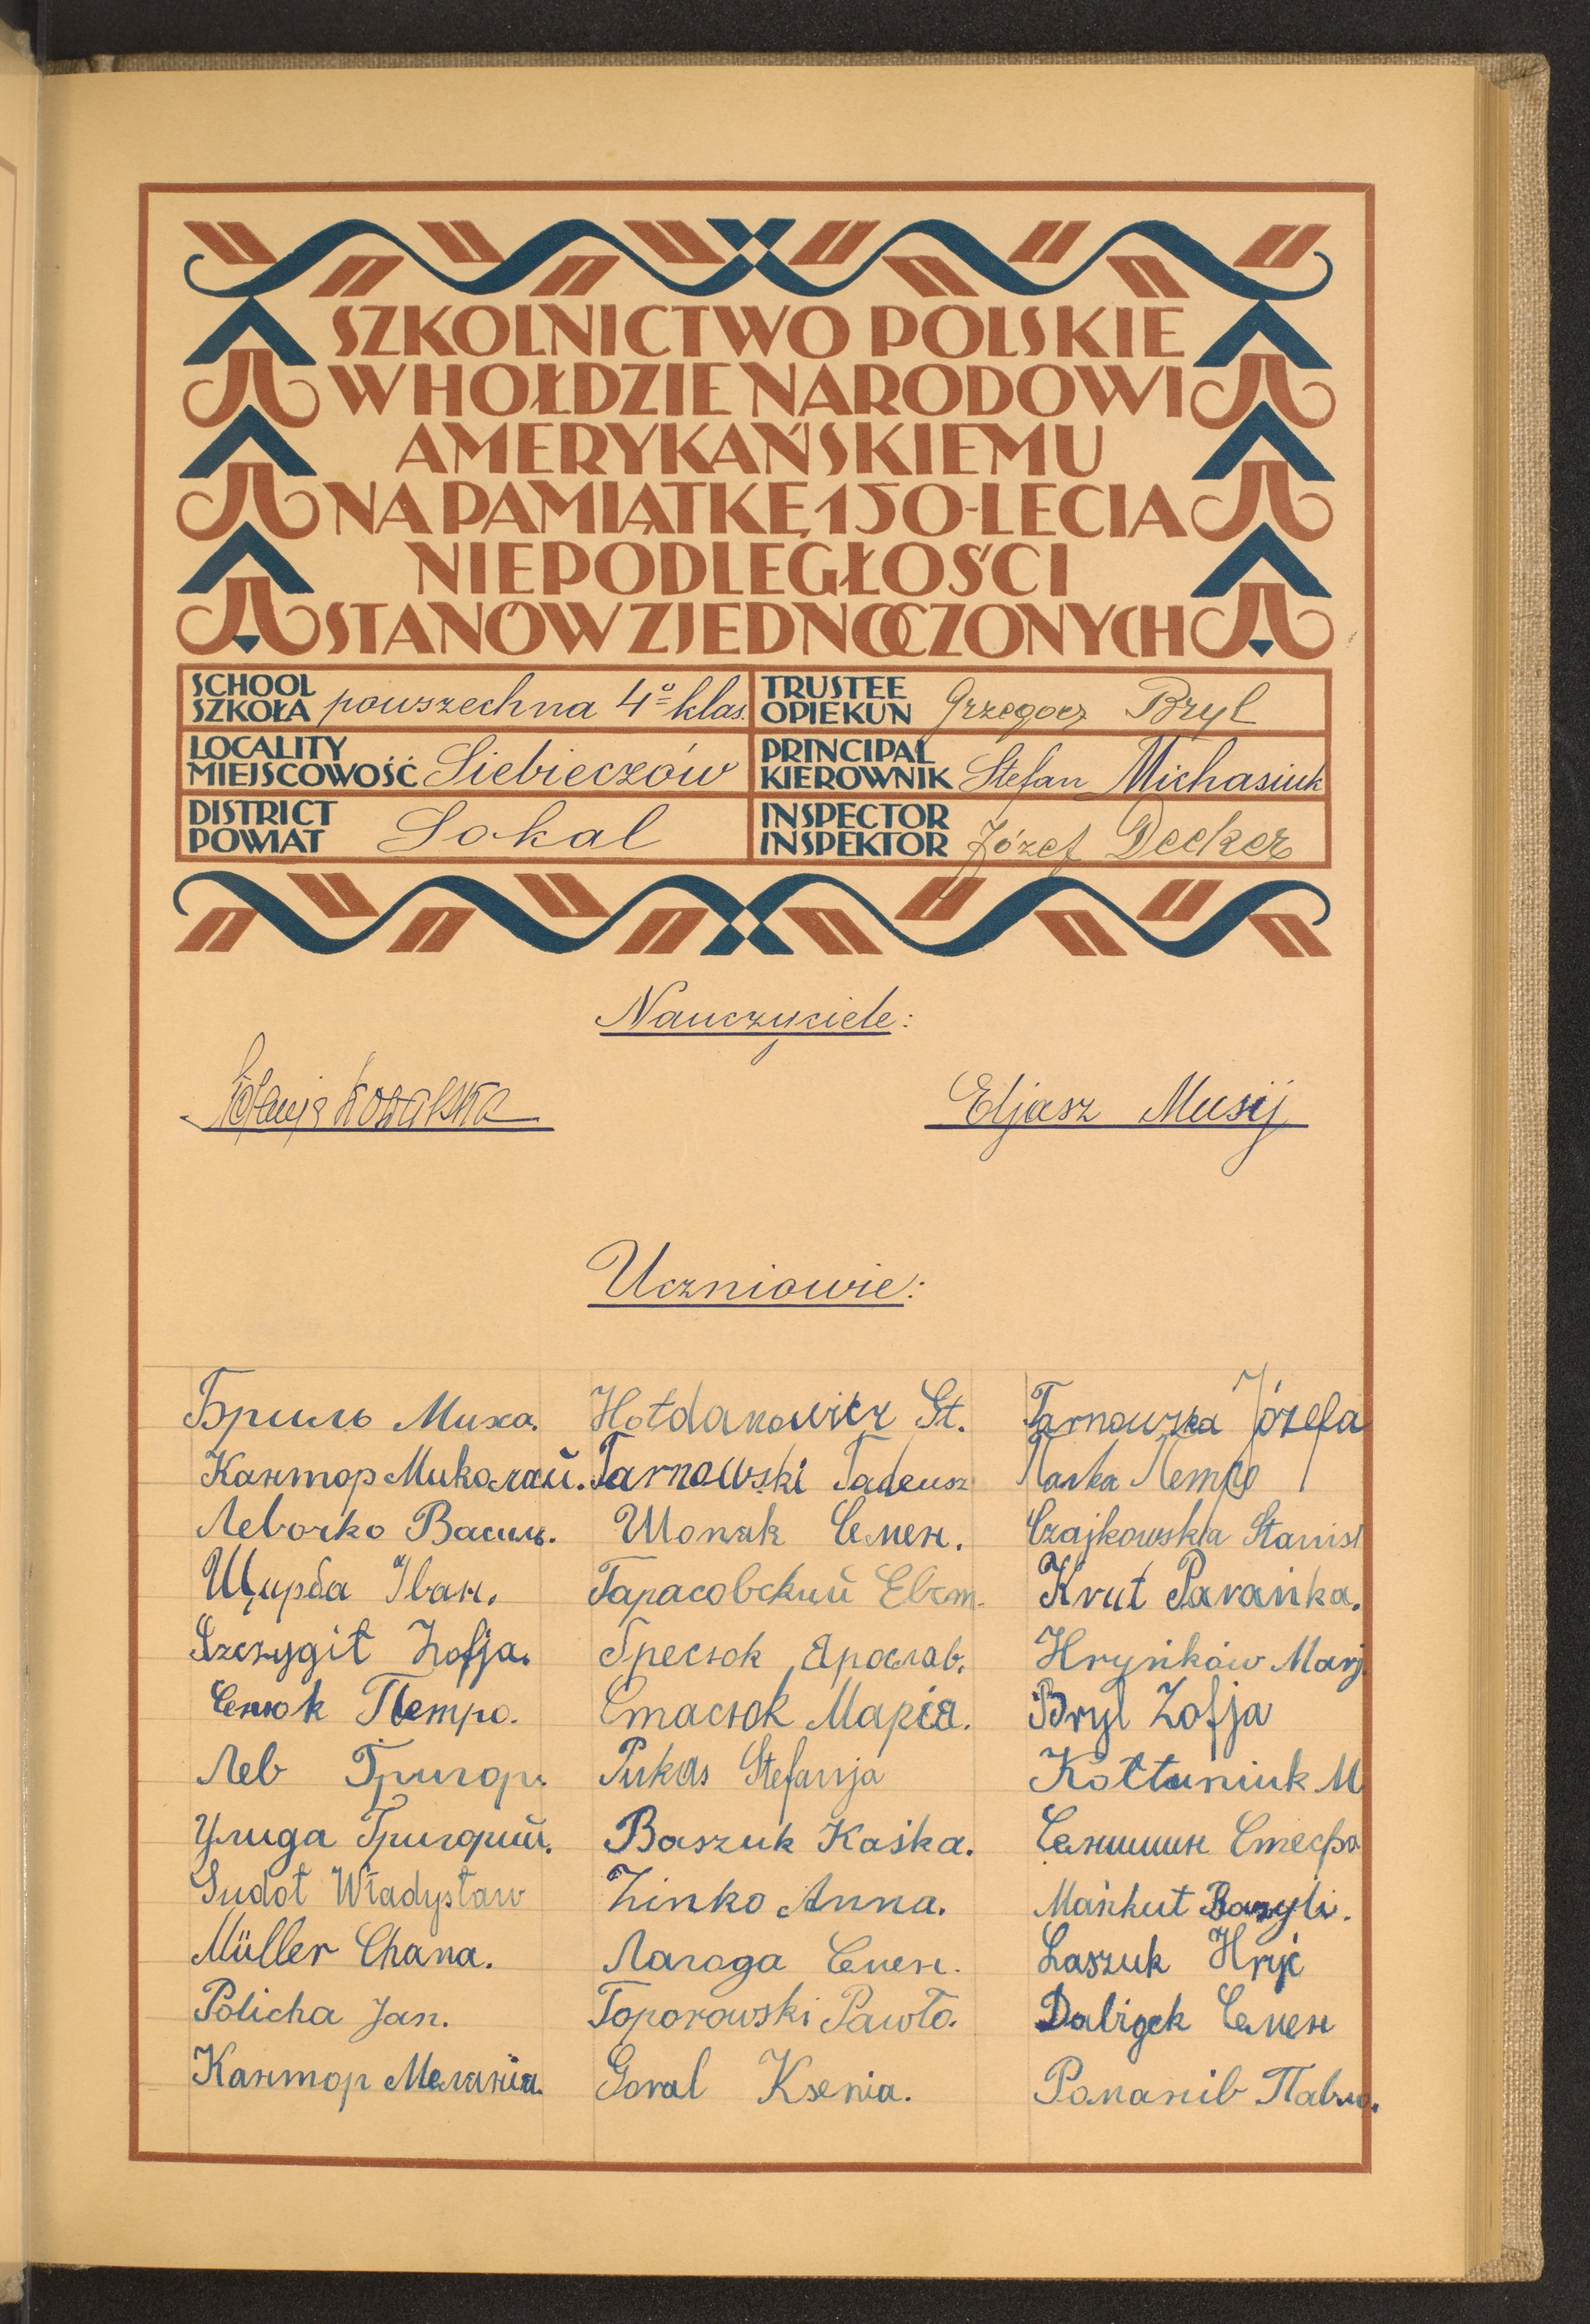 SZKOLNICTWO POLSKIE
W HOŁDZIE NARODOWI
AMERYKAŃSKIEMU
NA PAMIĄTKĘ 150-LECIA
NIEPODLEGŁOŚCI
STANÓW ZJEDNOCZONYCH
SCHOOL
SZKOŁA powszechna 4º klas.
TRUSTEE
OPIEKUN Grzegorz Bryl
LOCALITY
MIEJSCOWOŚĆ Siebieczów
PRINCIPAL
KIEROWNIK Stefan Michasiuk
DISTRICT
POWIAT Sokal
INSPECTOR
INSPEKTOR Józef Decker
Nauczyciele:
Kowalska Eljasz Musij
Uczniowie:
Бриль Миха. Hołdanowicz St. Tarnowska Józefa
Кантор Миколай. Tarnowski Tadeusz Петро
Левочко Василь. Шопяк Семен. Czajkowska Stanisł
Щирба Іван. Тарасовский Евст. Krut Parańka.
Szczygił Zofja. Гресюк Ярослав. Hryńków Marj.
Сенюк Петро. Стасюк Марія. Bryl Zofja
Лев Григор. Pukas Stefanja Kołtuniuk M
Улида Григорий. Baszuk Kaśka. Сенишин Стефа
Sudoł Władysław Zinko Anna. Mańkut Bazyli.
Müller Chana. Лагода Семен. Laszuk Hryć
Policha Jan. Toporowski Pawło. Семен
Кантор Меланія. Goral Ksenia. Романів Павло.